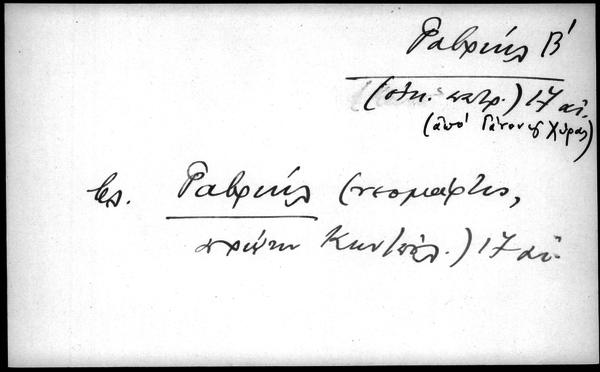 Γαβριήλ Β΄
(οἰκ. πατρ.) 17 αἰ.
(ἀπό Γάνου καὶ Χώρας)
βλ. Γαβριήλ (νεομάρτυς,
πρώην Κων/πόλ.) 17 αἰ.